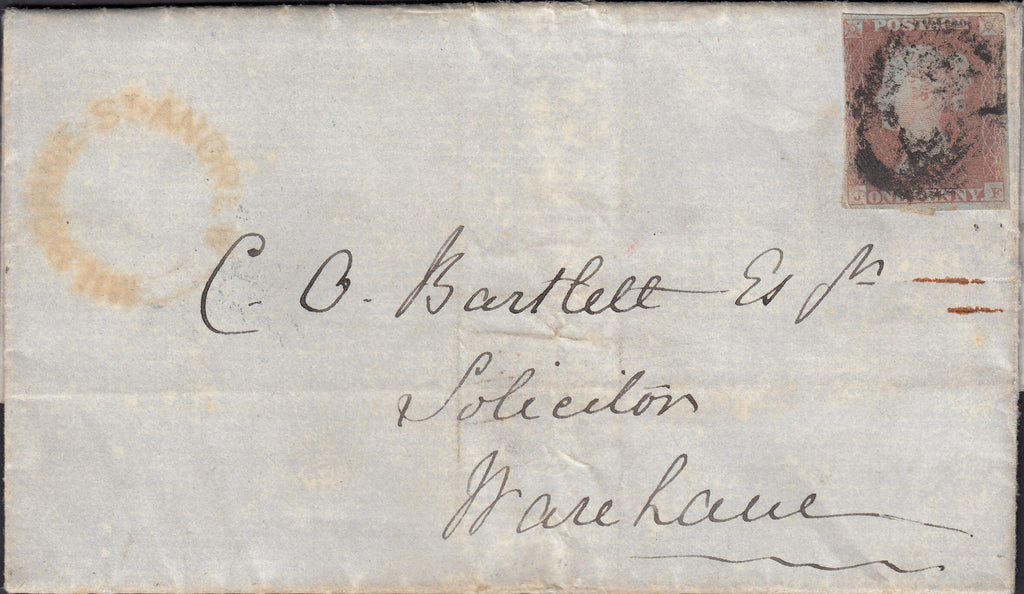 POSTAGE
J ONE PENNY F
MILBORNE ST ANDREWS
C. O. Bartlett Esqr
Solicitor
Wareham